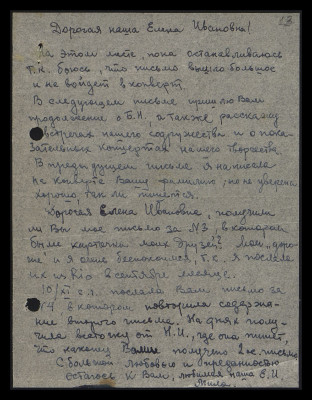 13
Дорогая наша Елена Ивановна!
На этом листе, пока останавливаюсь
т.к. боюсь, что письмо вышло большое
и не войдет в конверт.
В следующем письме пришлю Вам
продолжение о Б.Н., а также расскажу
о встречах нашего содружества и о пока-
зательных концертах нашего творчества.
В предыдущем письме я написала
на конверте Вашу фамилию, но не уверена
хорошо, так ли пишется.
Дорогая Елена Ивановна, получили
ли Вы мое письмо за №3, в котором
были карточки моих друзей?
и я очень беспокоюсь, т.к. я послала
их из Rio в сентябре месяце.
10/XI с.г. послала Вам письмо за
№4 в котором повторила содержа-
ние второго письма. На днях полу-
чила весточку от Н.И., где она пишет,
что наконец Вами получено
С большой любовью и преданностью
остаюсь к Вам, любимая наша Е.И.